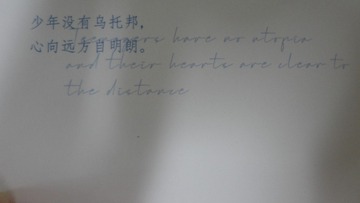 少年没有乌托邦,
心向远方自明朗。
Teenagers have no utopia
and their hearts are clear to
the distance